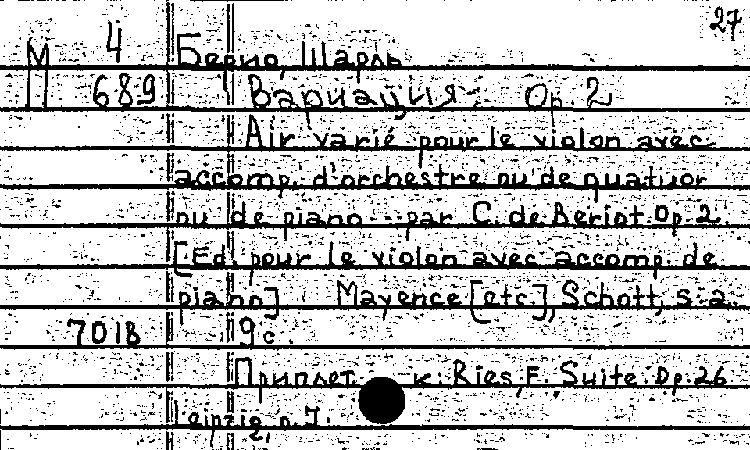 27
М 4 Берио, Шарль
689 Вариация; Op. 2
Air varié pour le violon avec
accomp. d'orchestre ou de quatuor
ou de piano...par C. de Beriot. Op. 2
[Ed. pour le violon avec accomp. de
piano] Mayence [etc.], Schott, s. a.
701В 9 с.
Приплет. к: Ries, F. Suite. Op. 26
Leipzig,